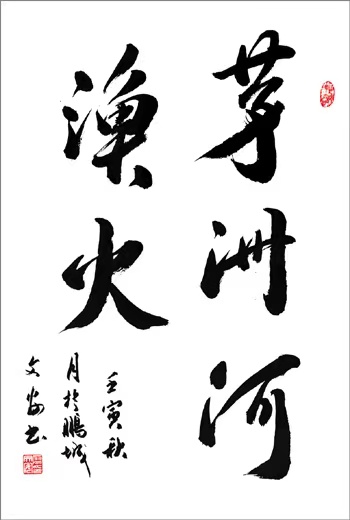 茅洲河
渔火
壬寅秋
月於鹏城
文安书